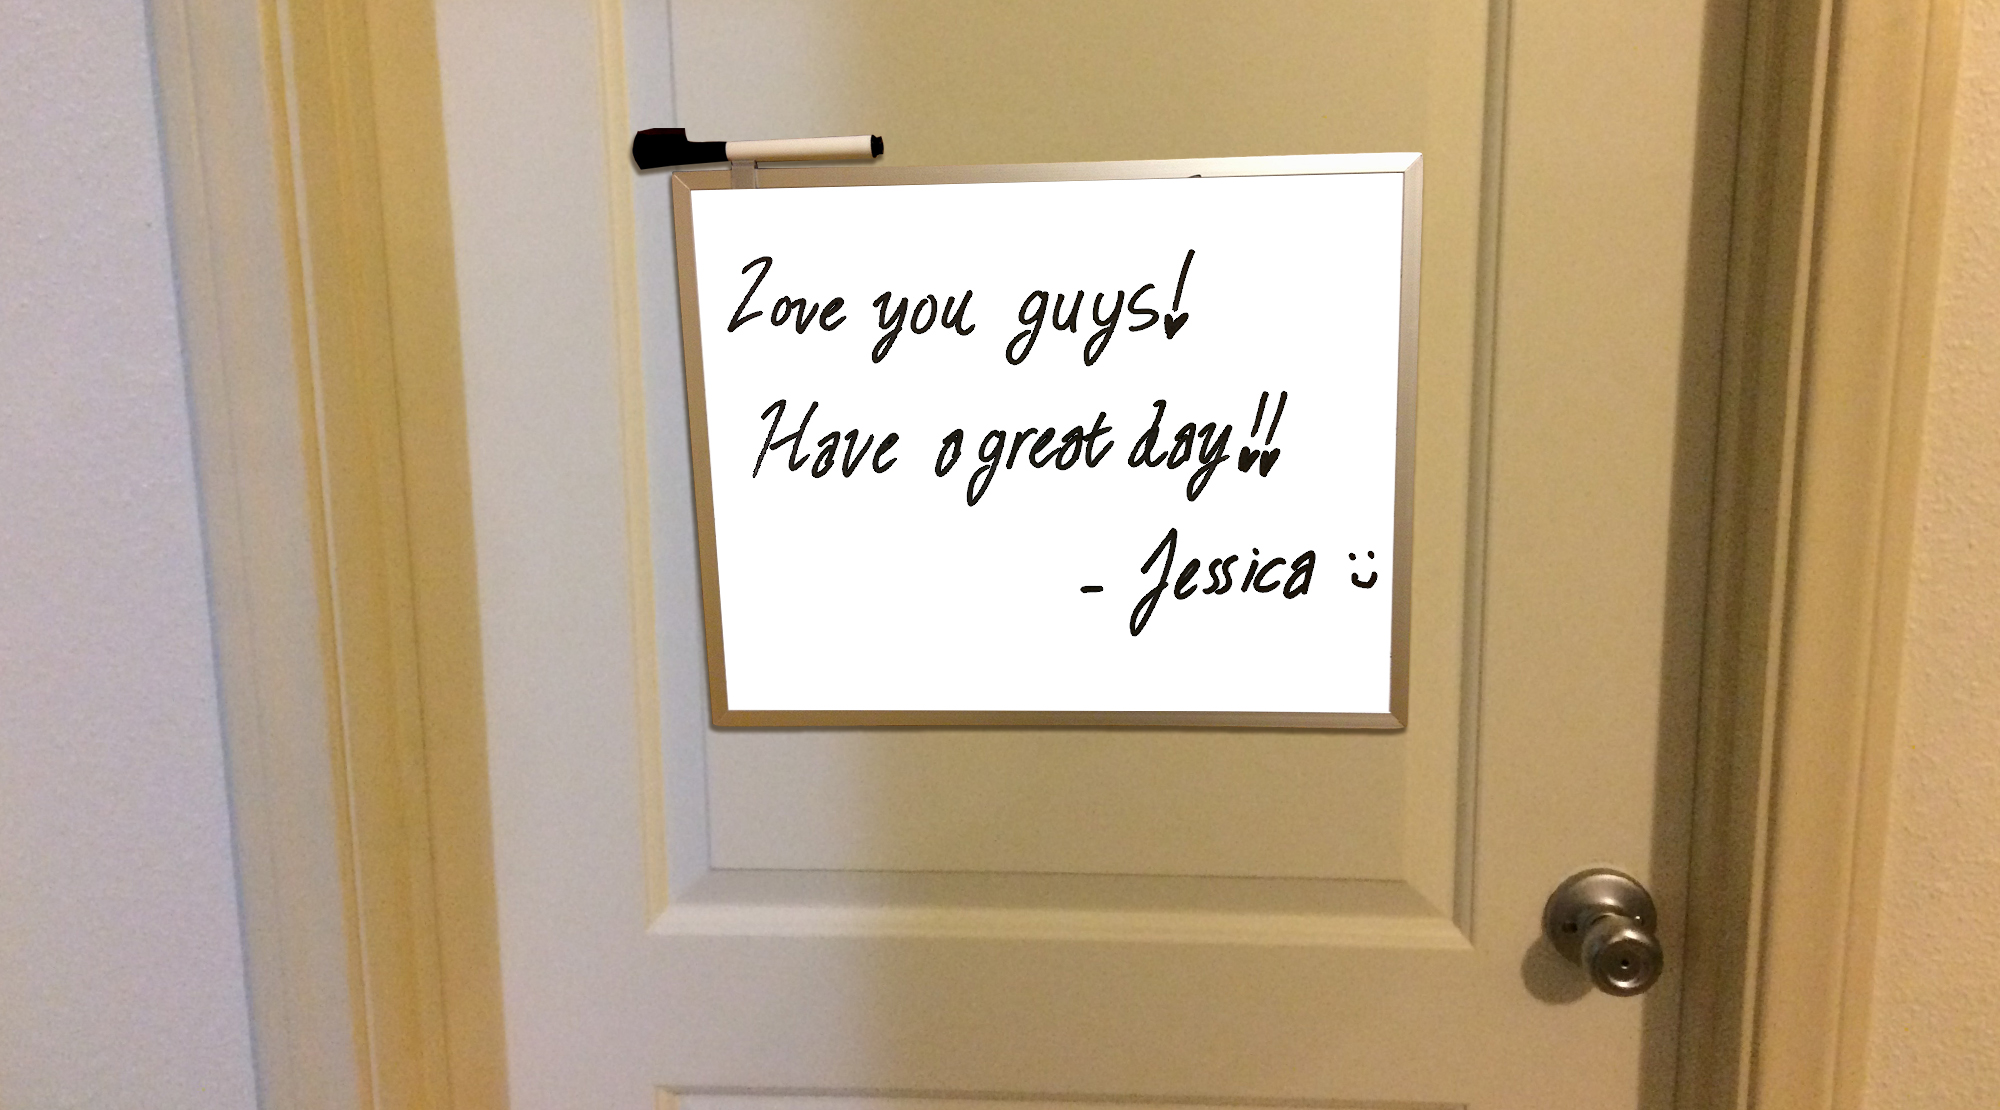 Love you guys!
Have a great day!!
- Jessica :)